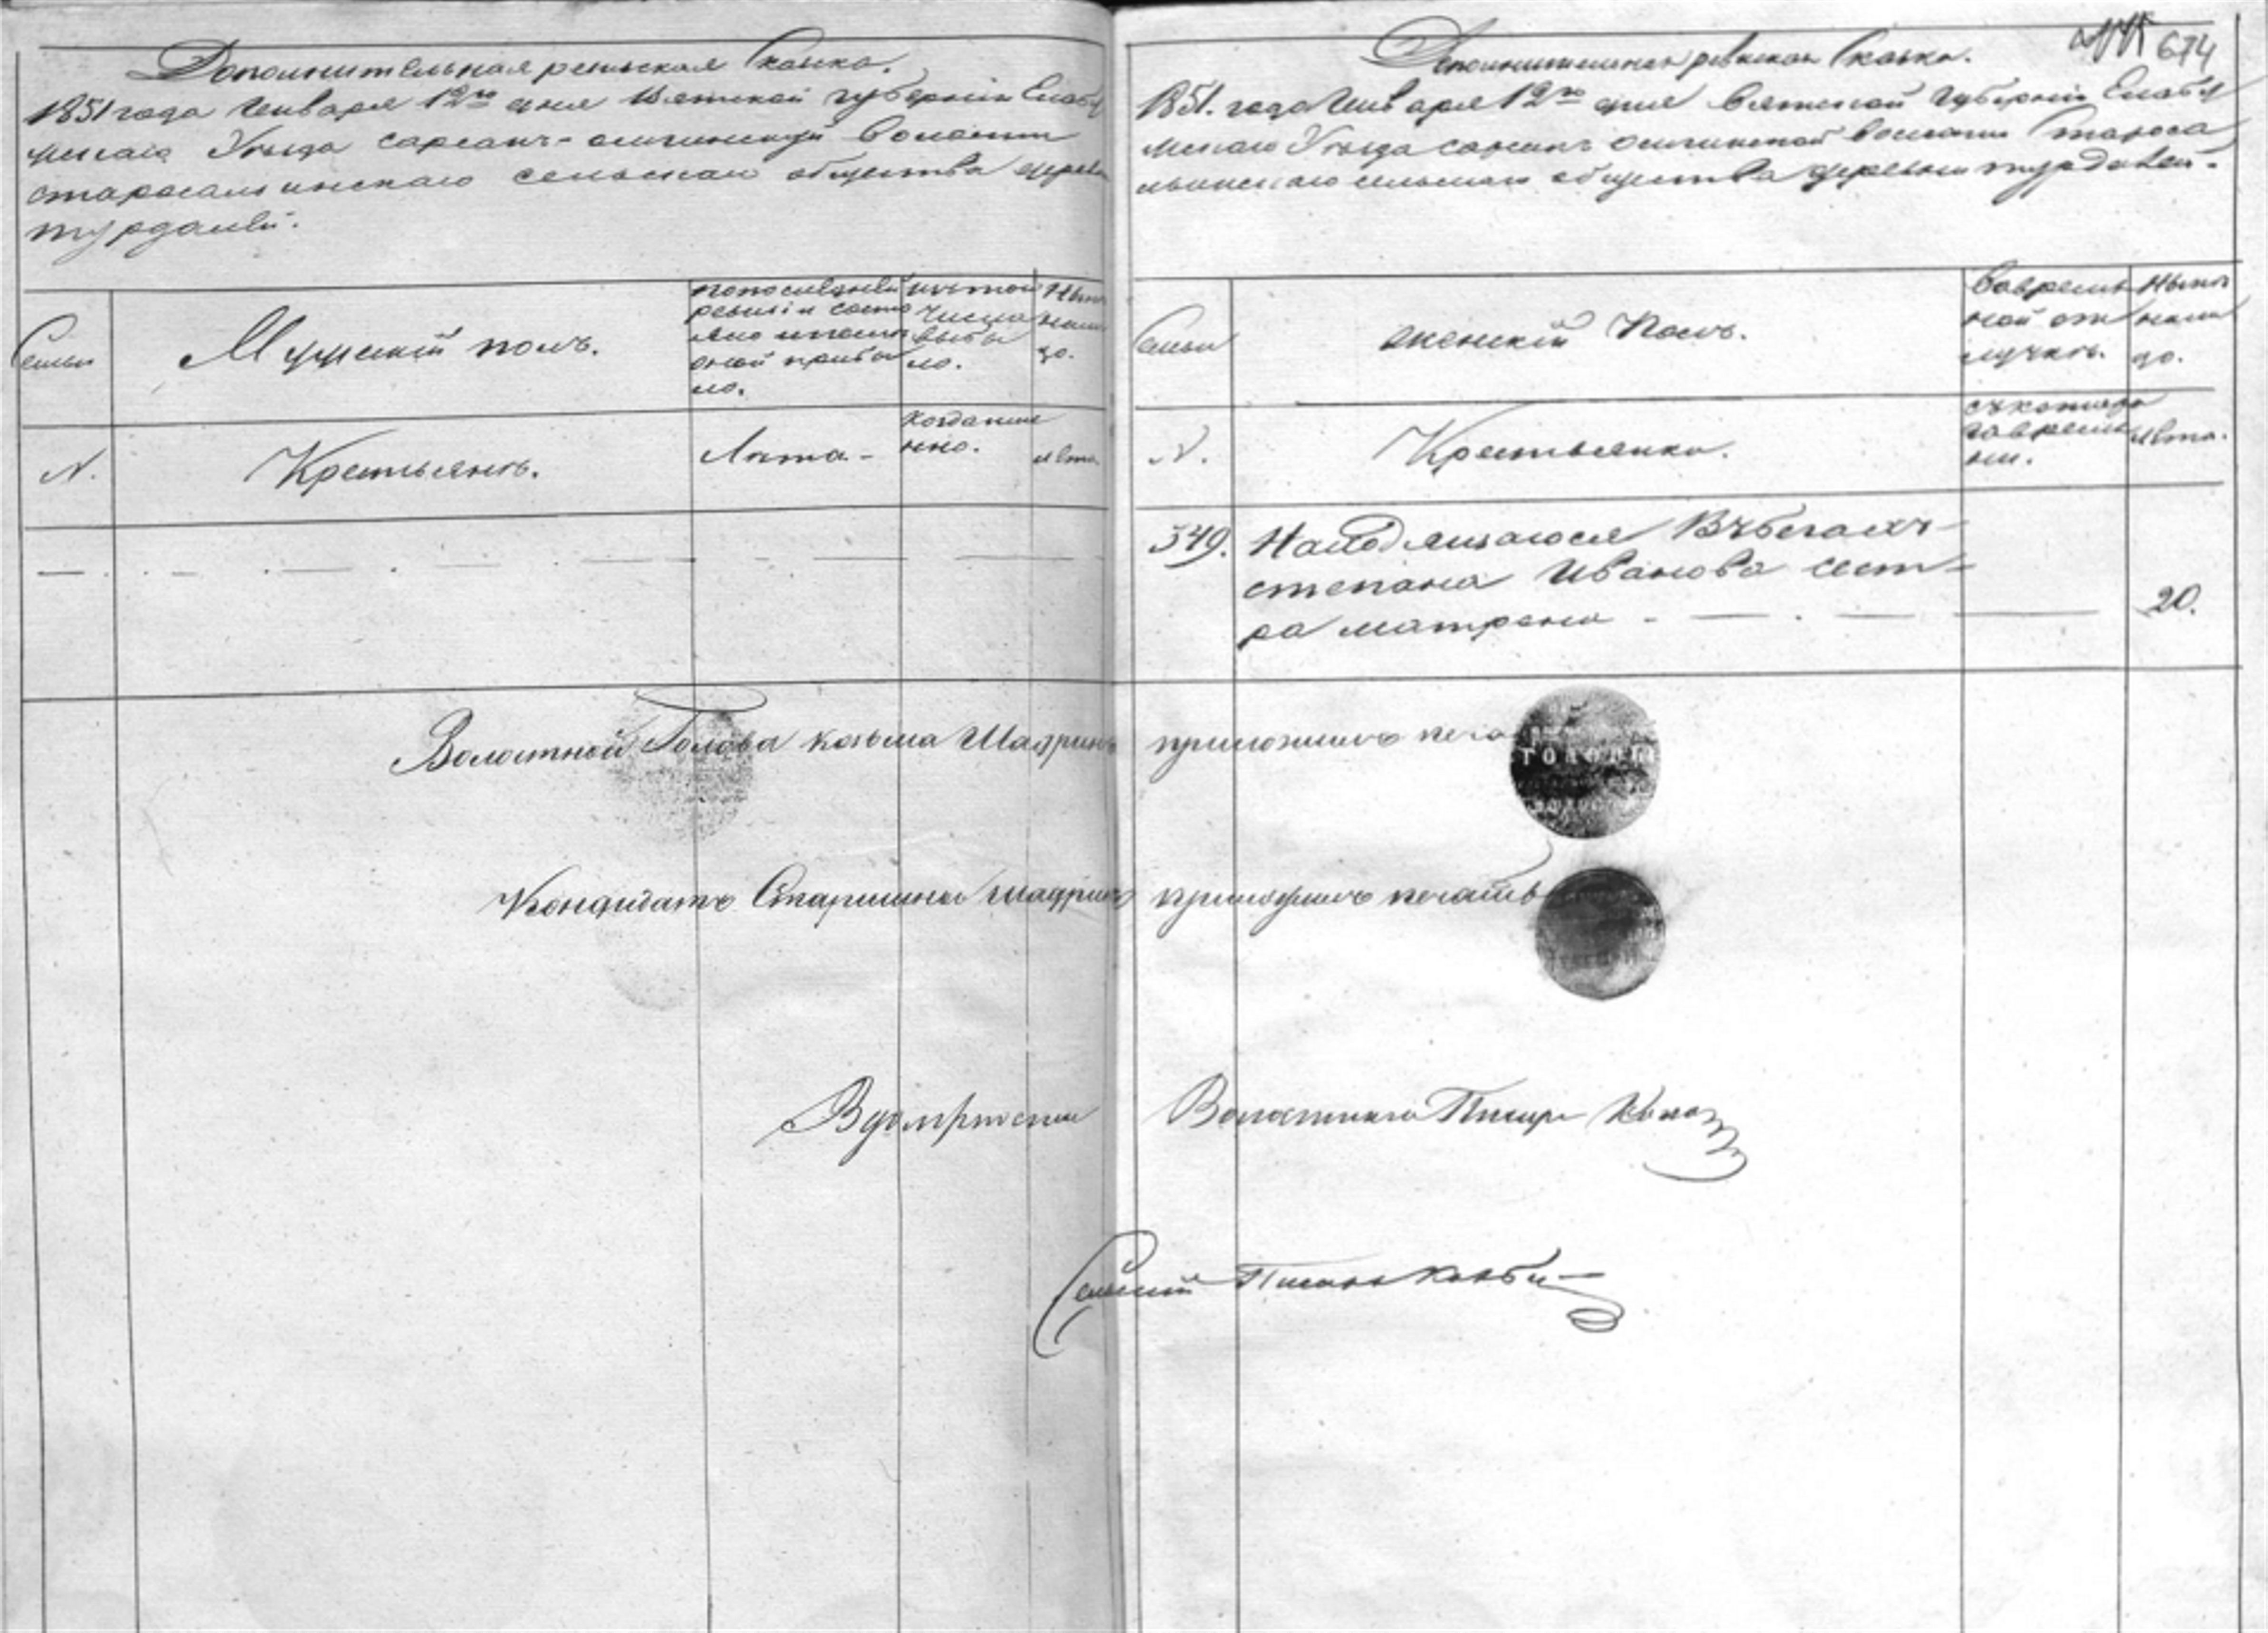 Дополнительная ревизская Сказка.
1851 года Января 12го дня Вятской губернии Елабу
жскаго Уезда сарсакъ-омгинской волости
старосальинскаго сельскаго общества дерев
турдалей.
Семьи
Мужской полъ.
попоследней
ревизіи состо
яло и после
оной прибы
ло.
изътого
числа
выбы
ло.
Ныне
нали
цо.
N.
Крестьянъ.
Лета
когдаиме
нно.
лета
674
Дополнительная ревизская Сказка.
1851. года Января 12го дня Вятской Губерніи Елабу
жскаго Уезда сарсакъ омгинской волости Староса
льинскаго сельскаго общества деревни турдалей.
Семьи
женскій Полъ.
Вовремен
ной от
лучке.
Ныне
нали
цо.
N.
Крестьянки.
съкотора
говреме
ни.
лета.
349. Находящагося Въбегахъ
степана Иванова сест
ра матрена 20.
Волостной Голова козьма Шадринъ приложилъ печа
Кандидатъ Старшина Шадринъ приложилъ печать
Волостнаго Писаря
Сельскій Писарь